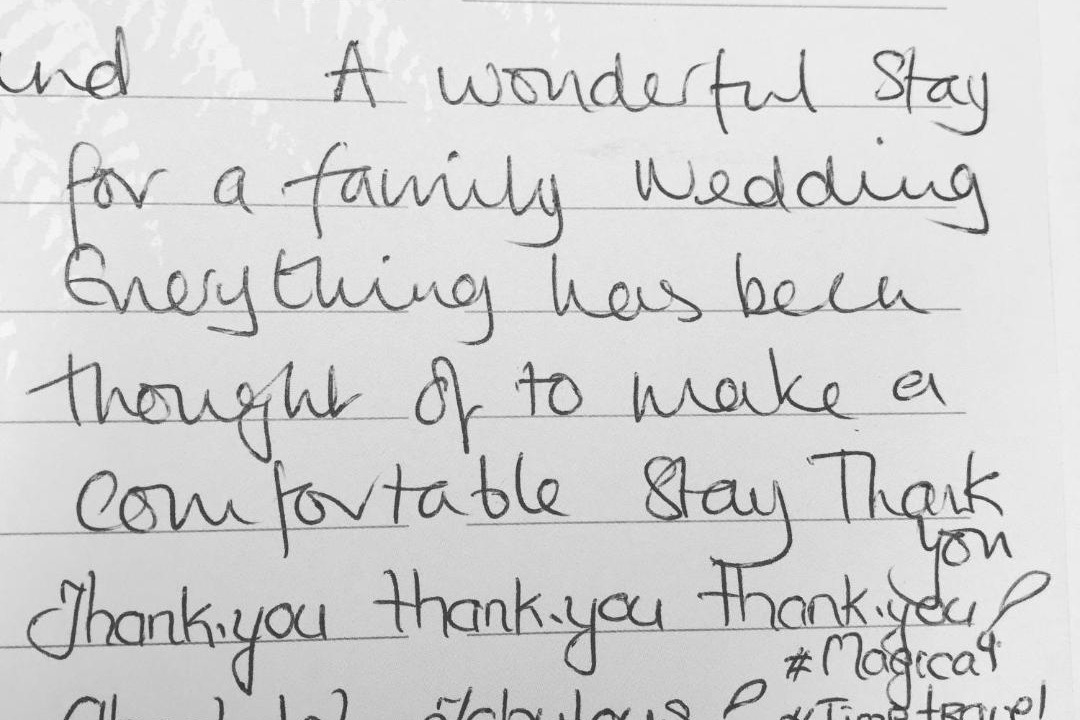 A wonderful Stay
for a family Wedding
Everything has been
thought of to make a
comfortable Stay Thank
you
Thank.you thank.you thank.you
#Magical